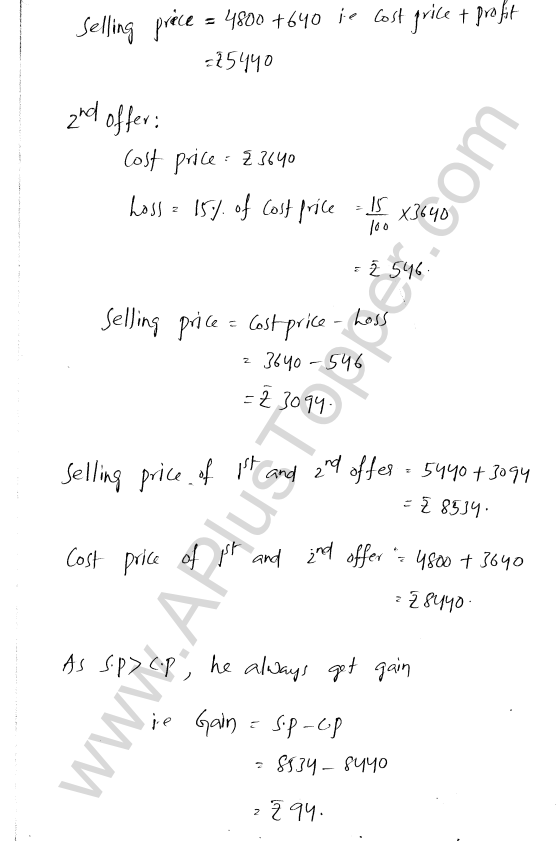 Selling price = 4800 + 640 i.e cost price + profit
= ₹5440
2nd offer:
Cost price = ₹3640
Loss = 15% of cost price = 15/100 × 3640
= ₹ 546.
Selling price = Cost price - Loss
= 3640 - 546
= ₹ 3094.
Selling price of 1st and 2nd offer = 5440 + 3094
= ₹ 8534.
Cost price of 1st and 2nd offer = 4800 + 3640
= ₹8440.
As S.P > C.P, he always get gain
i.e Gain = S.P - C.P
= 8534 - 8440
= ₹ 94.
www.APlusTopper.com